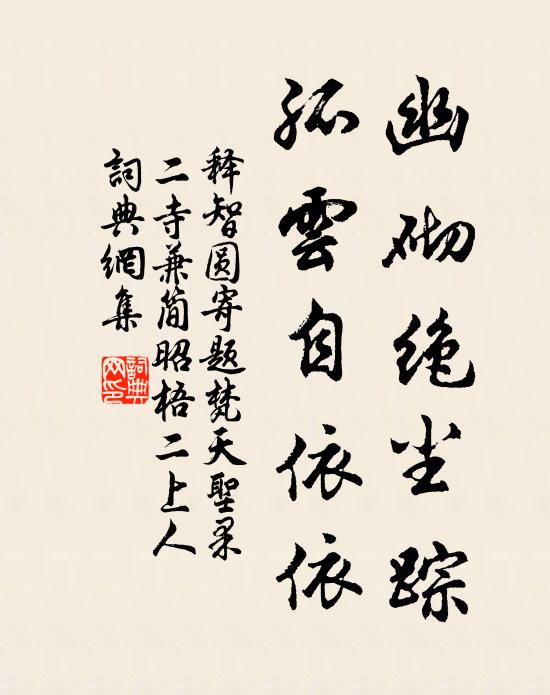 幽砌绝尘踪
孤雲自依依
释智圆寄题梵天聖果
二寺兼简昭梧二上人
詞典網集
詞典网印